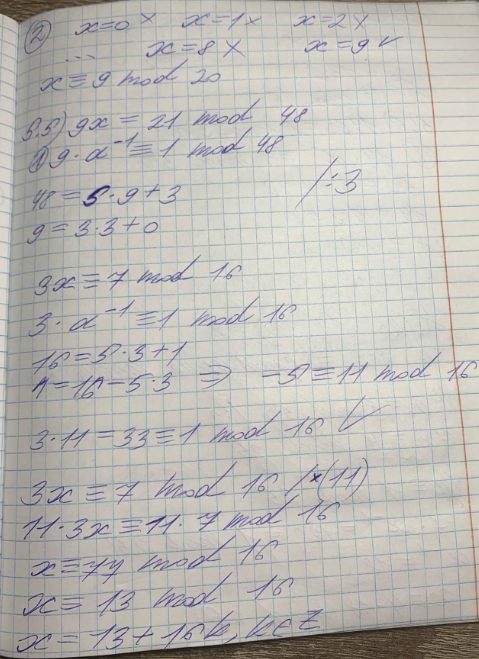 ② x=0 x x=1 x x=2 x
... x=8 x x=9 ✓
x ≡ 9 mod 20
5.5) 9x = 21 mod 48
① 9 · a⁻¹ ≡ 1 mod 48
48 = 5 · 9 + 3 / :3
9 = 3 · 3 + 0
3x ≡ 7 mod 16
3 · a⁻¹ ≡ 1 mod 16
16 = 5 · 3 + 1
1 = 16 - 5 · 3 ⇒ -5 ≡ 11 mod 16
3 · 11 = 33 ≡ 1 mod 16 ✓
3x ≡ 7 mod 16 /×(11)
11 · 3x ≡ 11 · 7 mod 16
x ≡ 77 mod 16
x ≡ 13 mod 16
x = 13 + 16k, k ∈ Z